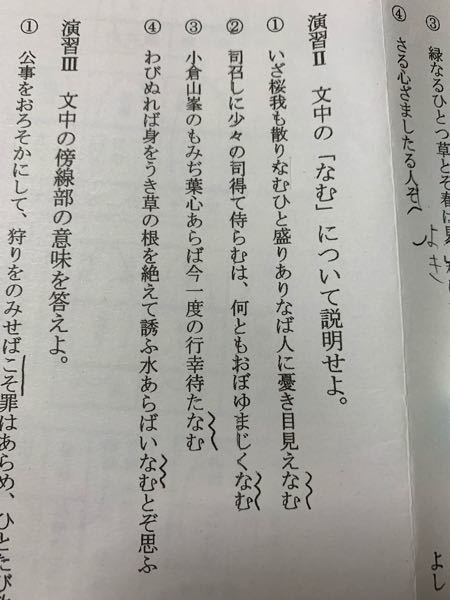 ③ 緑なるひとつ草とぞ春は見
④ さる心ざましたる人ぞ
よき
よし
演習Ⅱ 文中の「なむ」について説明せよ。
① いざ桜我も散りなむひと盛りありなば人に憂き目見えなむ
② 司召しに少々の司得て侍らむは、何ともおぼゆまじくなむ
③ 小倉山峯のもみぢ葉心あらば今一度の行幸待たなむ
④ わびぬれば身をうき草の根を絶えて誘ふ水あらばいなむとぞ思ふ
演習Ⅲ 文中の傍線部の意味を答えよ。
① 公事をおろそかにして、狩りをのみせばこそ罪はあらめ、ひとたび